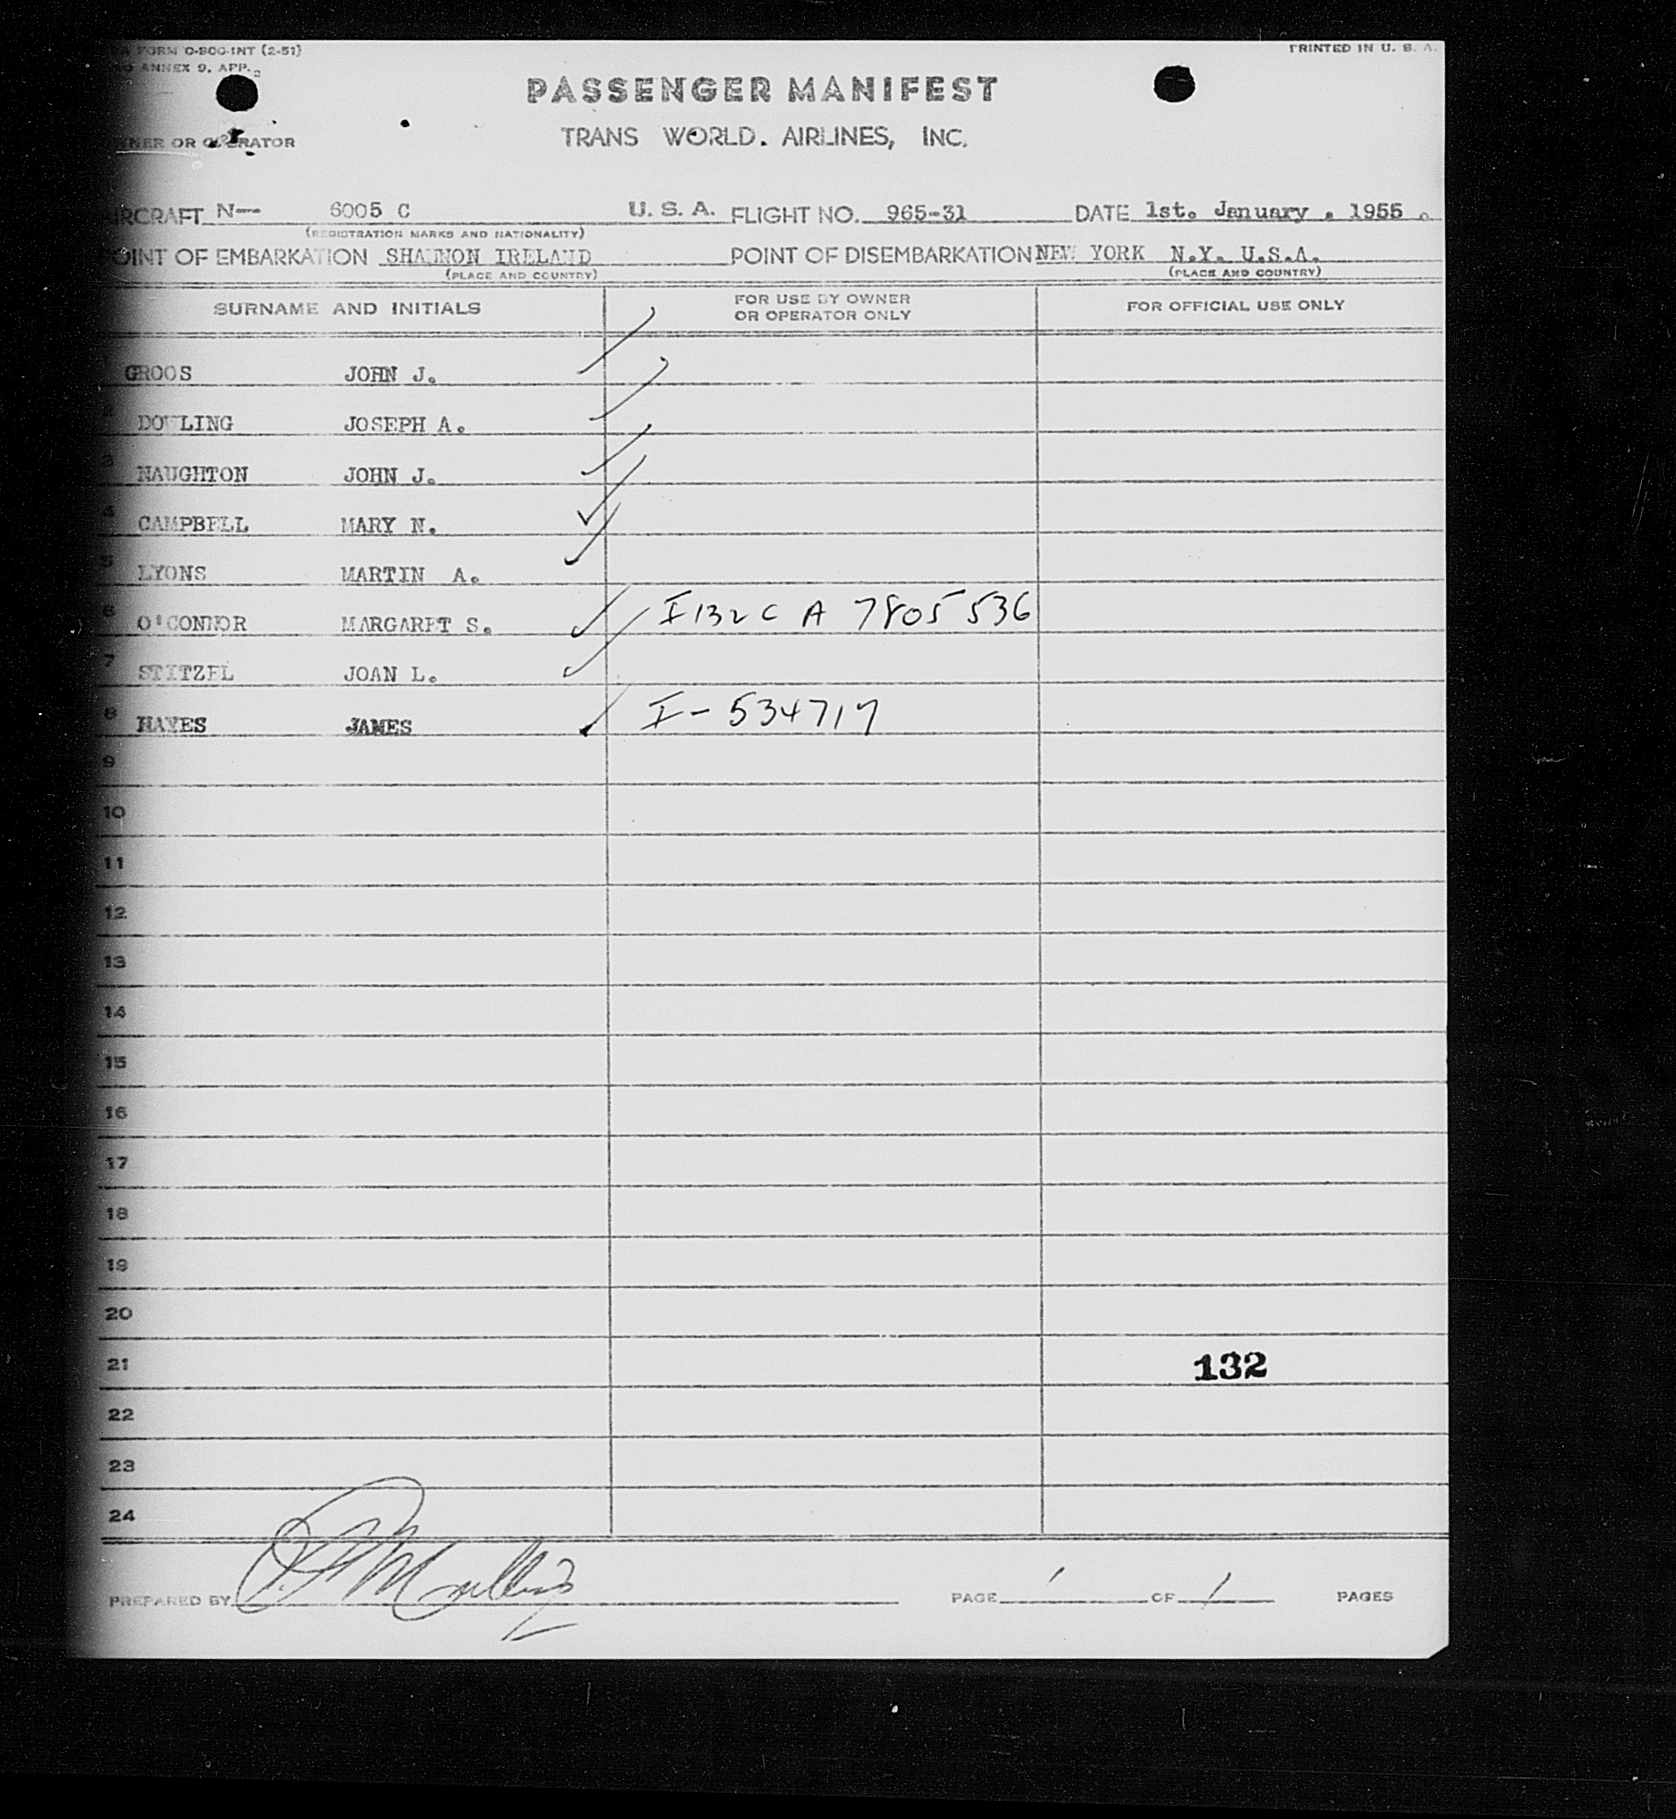 FORM O-800-INT (2-51)
ANNEX 9, APP. 2
PRINTED IN U. S. A.
PASSENGER MANIFEST
OWNER OR OPERATOR
TRANS WORLD. AIRLINES, INC.
AIRCRAFT N-- 6005 C U. S. A. FLIGHT NO. 965-31 DATE 1st. January . 1955 .
(REGISTRATION MARKS AND NATIONALITY)
POINT OF EMBARKATION SHANNON IRELAND POINT OF DISEMBARKATION NEW YORK N.Y. U.S.A.
(PLACE AND COUNTRY) (PLACE AND COUNTRY)
SURNAME AND INITIALS FOR USE BY OWNER OR OPERATOR ONLY FOR OFFICIAL USE ONLY
GROOS JOHN J.
2 DOWLING JOSEPH A.
3 NAUGHTON JOHN J.
4 CAMPBELL MARY N.
5 LYONS MARTIN A.
6 O'CONNOR MARGARET S. I 132 C A 7805 536
7 STITZEL JOAN L.
8 HAYES JAMES I-534717
9
10
11
12
13
14
15
16
17
18
19
20
21 132
22
23
24
PREPARED BY PAGE 1 OF 1 PAGES